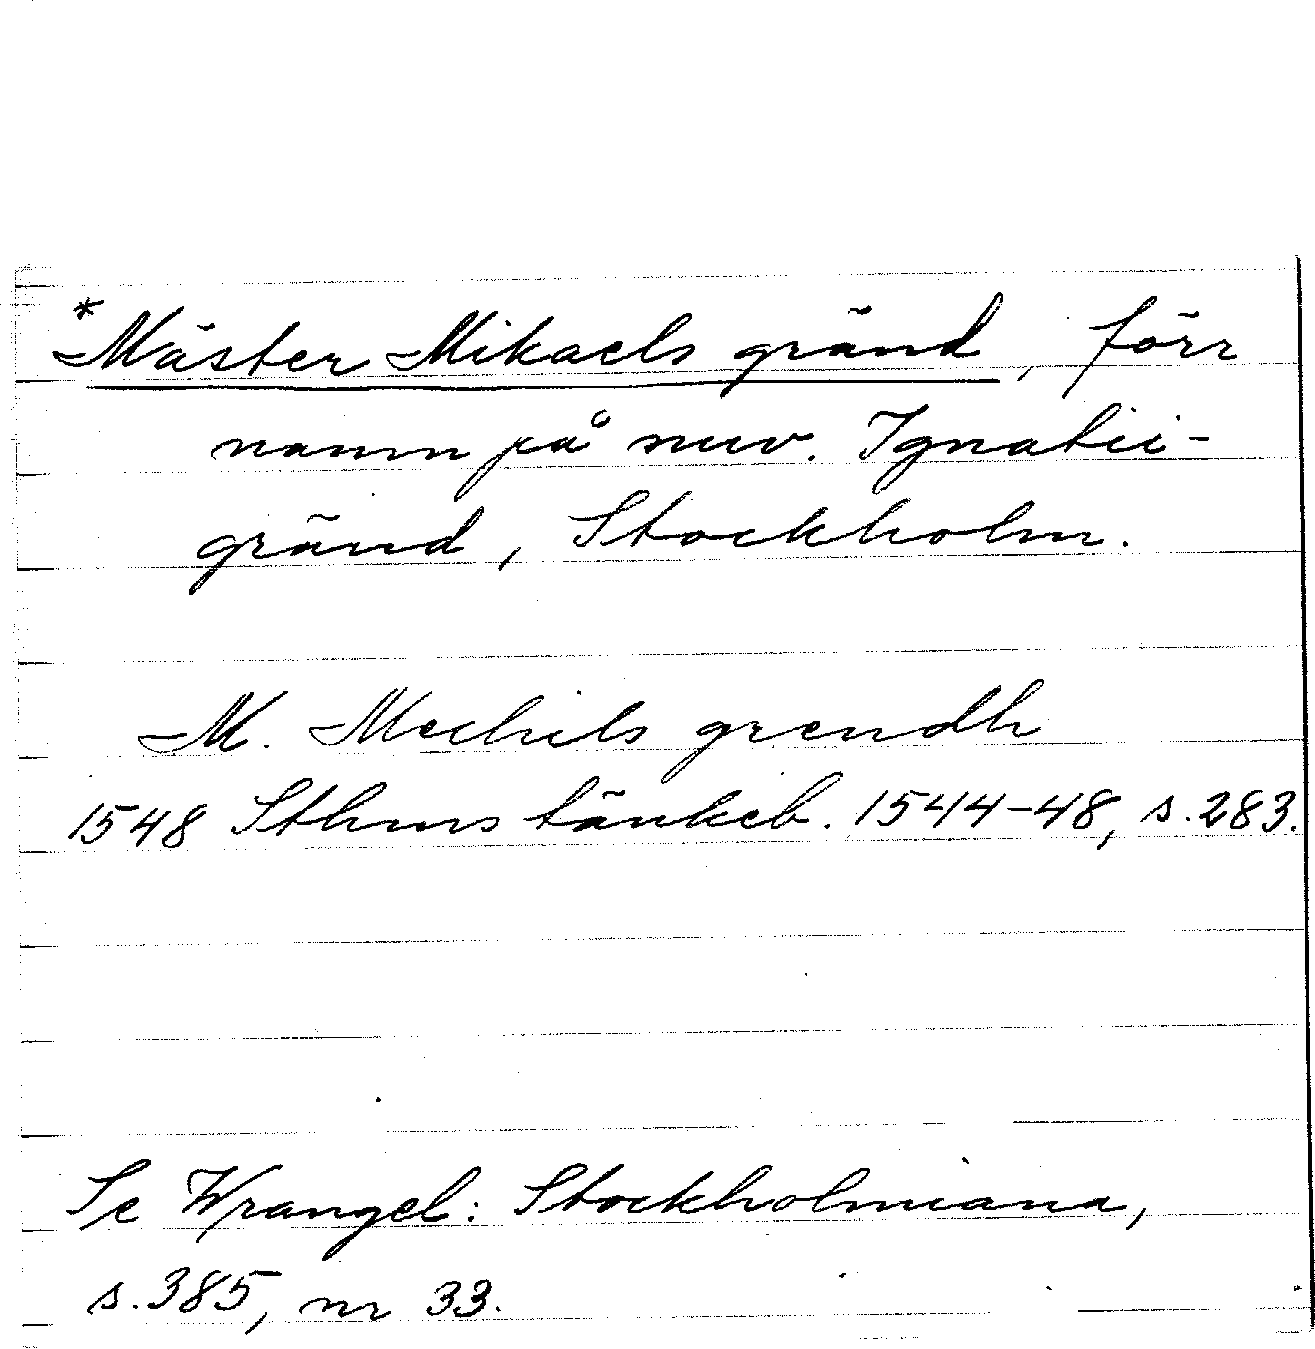 *Mäster Mikaels gränd, förr
namn på nuv. Ignatii-
gränd, Stockholm.
M. Mechils grendh
1548 Sthms tänkeb. 1544-48, s. 283.
Se Wrangel: Stockholmiana,
s. 385, nr 33.